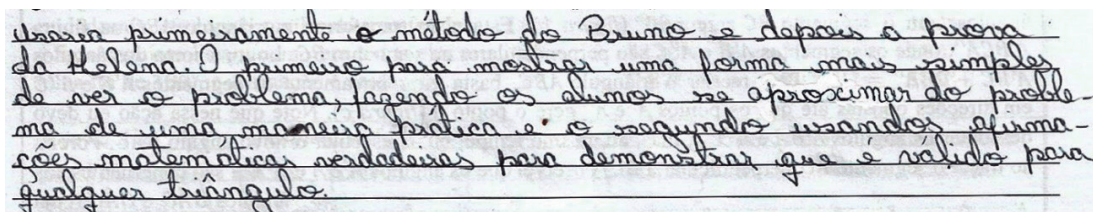 usaria primeiramente o método do Bruno e depois a prova
do Hamon. O primeiro para mostrar uma forma mais simples
de ver o problema, fazendo os alunos se aproximar do proble-
ma de uma maneira prática e o segundo usandos afirma-
ções matematicas verdadeiras para demonstrar que e valido para
qualquer triângulo.